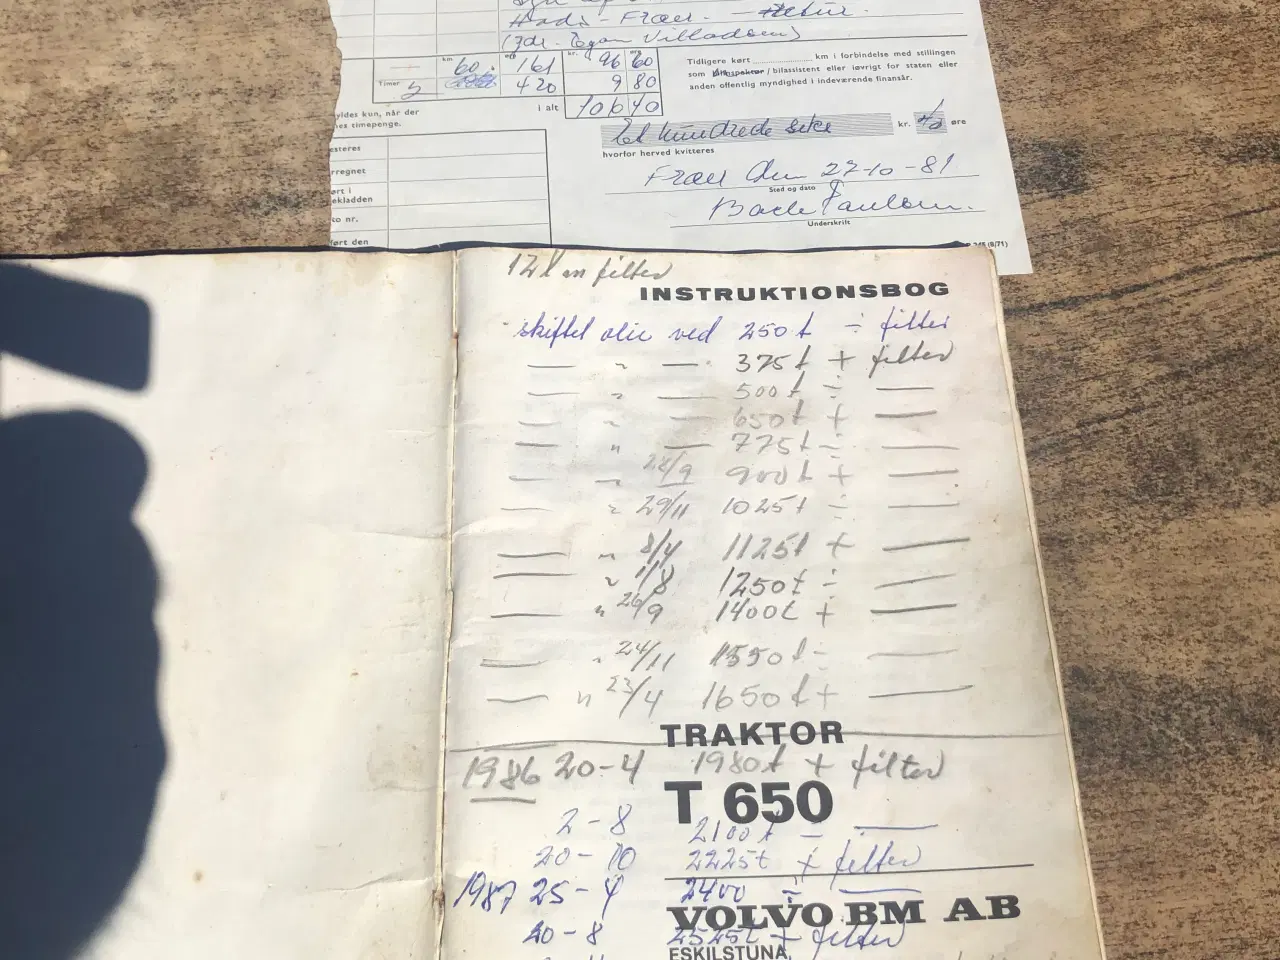 Hads - Fræer. - Retur.
(Fdr. Egon Villadsen)
km 60. øre 161 kr. 96 øre 60
Timer 420 9 80
i alt 106 40
Tidligere kørt km i forbindelse med stillingen
som / bilassistent eller iøvrigt for staten eller
anden offentlig myndighed i indeværende finansår.
yldes kun, når der
nes timepenge.
Et hundrede seks kr. 40 øre
hvorfor herved kvitteres
esteres
rregnet
ørt i
ekladden
to nr.
ført den
Fræer den 27-10-81
Sted og dato
Underskrift
(8/71)
12 l m filter
INSTRUKTIONSBOG
skiftet olie ved 250 t ÷ filter
— " — 375 t + filter
— " — 500 t ÷ —
— " — 650 t + —
— " — 775 t ÷ —
— " 28/9 900 t + —
— " 29/11 1025 t ÷ —
— " 8/4 1125 t + —
— " 1/8 1250 t ÷ —
— " 26/9 1400 t + —
— " 24/11 1550 t ÷ —
— " 23/4 1650 t + —
TRAKTOR
1986 20-4 1980 t + filter
T 650
2-8 2100 t ÷ —
20-10 2225 t + filter
1987 25-4 2400 ÷ —
VOLVO BM AB
20-8 2525 t + filter
ESKILSTUNA,